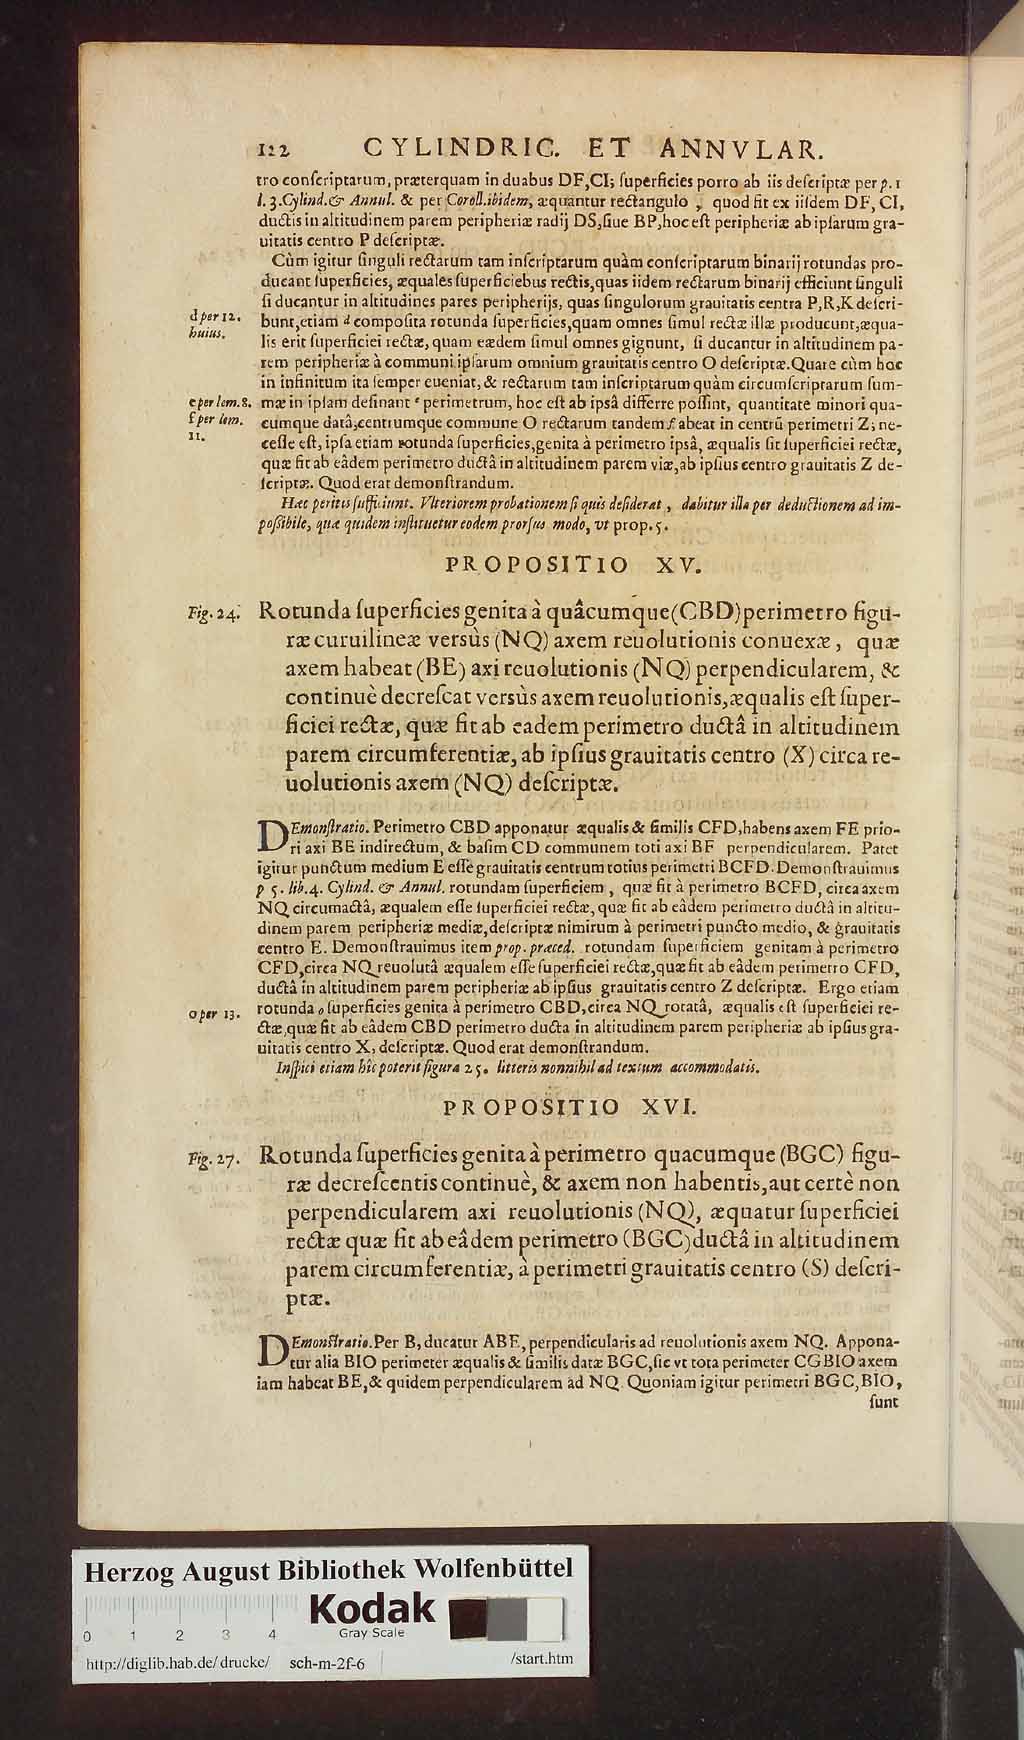 122 CYLINDRIC. ET ANNVLAR.
tro conſcriptarum, præterquam in duabus DF,CI; ſuperficies porro ab iis deſcriptæ per p. 1
l. 3. Cylind. & Annul. & per Coroll. ibidem, æquantur rectangulo, quod fit ex iiſdem DF, CI,
ductis in altitudinem parem peripheriæ radij DS, ſiue BP, hoc eſt peripheriæ ab ipſarum gra-
uitatis centro P deſcriptæ.
Cùm igitur ſinguli rectarum tam inſcriptarum quàm conſcriptarum binarij rotundas pro-
ducant ſuperficies, æquales ſuperficiebus rectis, quas iidem rectarum binarij efficiunt ſinguli
ſi ducantur in altitudines pares peripherijs, quas ſingulorum grauitatis centra P,R,K deſcri-
d per 12. bunt, etiam d compoſita rotunda ſuperficies, quam omnes ſimul rectæ illæ producunt, æqua-
huius. lis erit ſuperficiei rectæ, quam eædem ſimul omnes gignunt, ſi ducantur in altitudinem pa-
rem peripheriæ à communi ipſarum omnium grauitatis centro O deſcriptæ. Quare cùm hoc
in infinitum ita ſemper eueniat, & rectarum tam inſcriptarum quàm circumſcriptarum ſum-
e per lem. 8. mæ in ipſam deſinant e perimetrum, hoc eſt ab ipsâ differre poſſint, quantitate minori qua-
f per lem. cumque datâ; centrumque commune O rectarum tandem f abeat in centrū perimetri Z; ne-
11. ceſſe eſt, ipſa etiam rotunda ſuperficies, genita à perimetro ipsâ, æqualis ſit ſuperficiei rectæ,
quæ fit ab eâdem perimetro ductâ in altitudinem parem viæ, ab ipſius centro grauitatis Z de-
ſcriptæ. Quod erat demonſtrandum.
Hæc peritis ſufficiunt. Vlteriorem probationem ſi quis deſiderat, dabitur illa per deductionem ad im-
poſſibile, quæ quidem inſtituetur eodem prorſus modo, vt prop. 5.
PROPOSITIO XV.
Fig. 24. Rotunda ſuperficies genita à quâcumque (CBD) perimetro figu-
ræ curuilineæ versùs (NQ) axem reuolutionis conuexæ, quæ
axem habeat (BE) axi reuolutionis (NQ) perpendicularem, &
continuè decreſcat versùs axem reuolutionis, æqualis eſt ſuper-
ficiei rectæ, quæ fit ab eadem perimetro ductâ in altitudinem
parem circumferentiæ, ab ipſius grauitatis centro (X) circa re-
uolutionis axem (NQ) deſcriptæ.
DEmonſtratio. Perimetro CBD apponatur æqualis & ſimilis CFD, habens axem FE prio-
ri axi BE indirectum, & baſim CD communem toti axi BF perpendicularem. Patet
igitur punctum medium E eſſe grauitatis centrum totius perimetri BCFD. Demonſtrauimus
p 5. lib. 4. Cylind. & Annul. rotundam ſuperficiem, quæ fit à perimetro BCFD, circa axem
NQ circumactâ, æqualem eſſe ſuperficiei rectæ, quæ fit ab eâdem perimetro ductâ in altitu-
dinem parem peripheriæ mediæ, deſcriptæ nimirum à perimetri puncto medio, & grauitatis
centro E. Demonſtrauimus item prop. præced. rotundam ſuperficiem genitam à perimetro
CFD, circa NQ reuolutâ æqualem eſſe ſuperficiei rectæ, quæ fit ab eâdem perimetro CFD,
ductâ in altitudinem parem peripheriæ ab ipſius grauitatis centro Z deſcriptæ. Ergo etiam
o per 13. rotunda o ſuperficies genita à perimetro CBD, circa NQ rotatâ, æqualis eſt ſuperficiei re-
ctæ, quæ fit ab eâdem CBD perimetro ducta in altitudinem parem peripheriæ ab ipſius gra-
uitatis centro X, deſcriptæ. Quod erat demonſtrandum.
Inſpici etiam hîc poterit figura 25. litteris nonnihil ad textum accommodatis.
PROPOSITIO XVI.
Fig. 27. Rotunda ſuperficies genita à perimetro quacumque (BGC) figu-
ræ decreſcentis continuè, & axem non habentis, aut certè non
perpendicularem axi reuolutionis (NQ), æquatur ſuperficiei
rectæ quæ fit ab eâdem perimetro (BGC) ductâ in altitudinem
parem circumferentiæ, à perimetri grauitatis centro (S) deſcri-
ptæ.
DEmonſtratio. Per B, ducatur ABE, perpendicularis ad reuolutionis axem NQ. Appona-
tur alia BIO perimeter æqualis & ſimilis datæ BGC, ſic vt tota perimeter CGBIO axem
iam habeat BE, & quidem perpendicularem ad NQ. Quoniam igitur perimetri BGC, BIO,
ſunt
Herzog August Bibliothek Wolfenbüttel
Kodak
Gray Scale
0 1 2 3 4
http://diglib.hab.de/drucke/ sch-m-2f-6 /start.htm